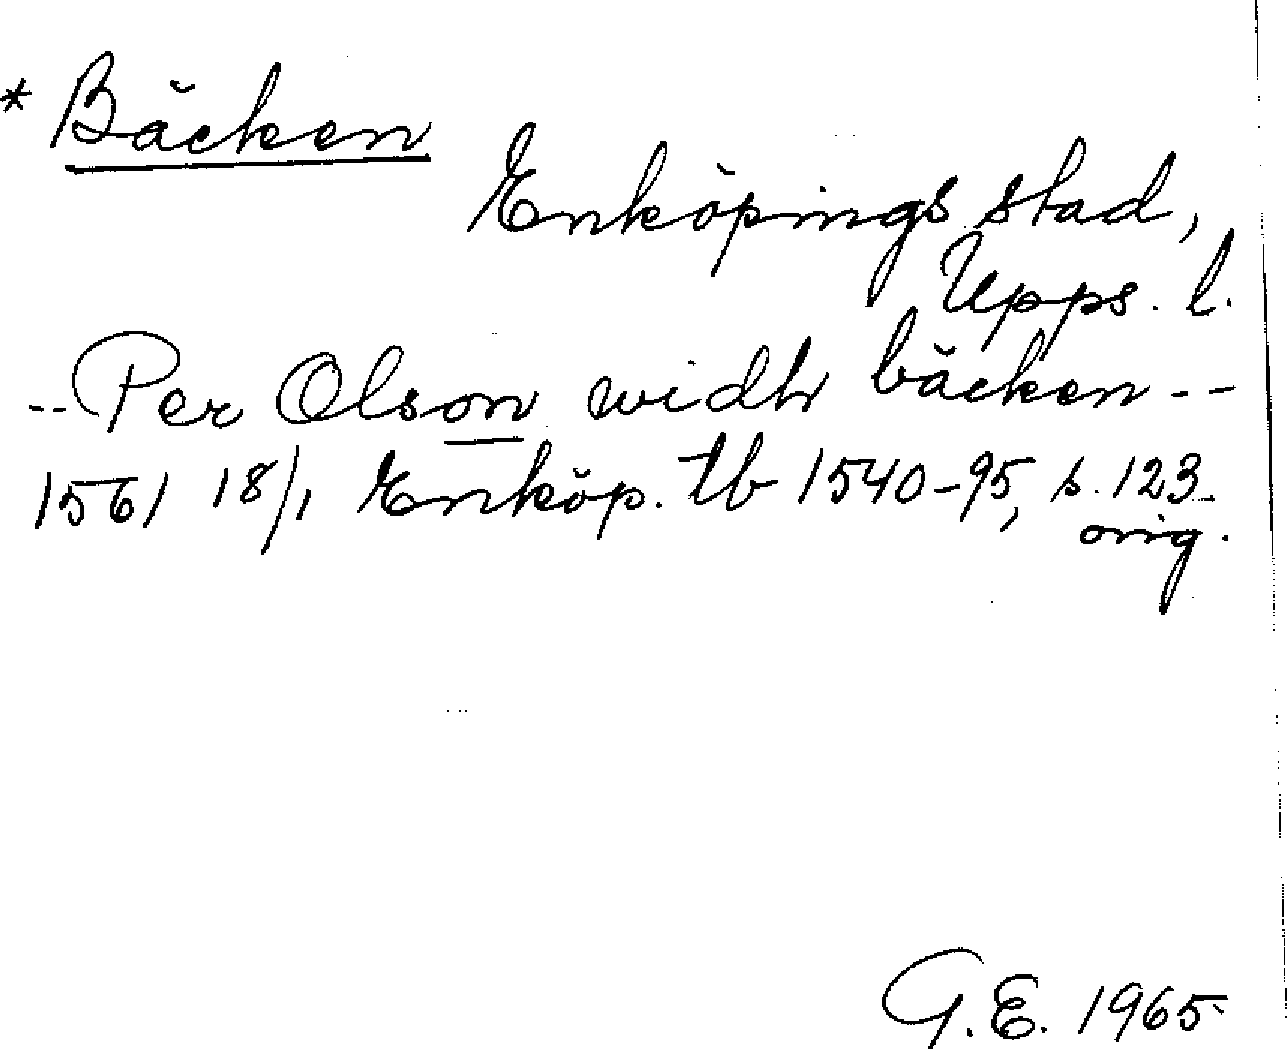 * Bäcken
Enköpings stad,
Upps. l.
-- Per Olson widh bäcken --
1561 18/1 Enköp. tb 1540-95, s. 123
orig.
G.E. 1965